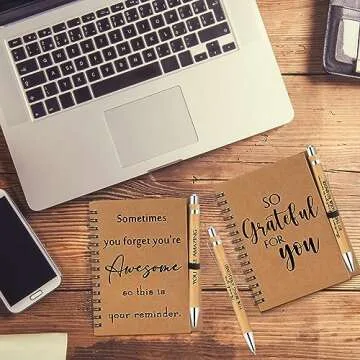 Sometimes
you forget you're
Awesome
so this is
your reminder.
SO
Grateful
FOR
you